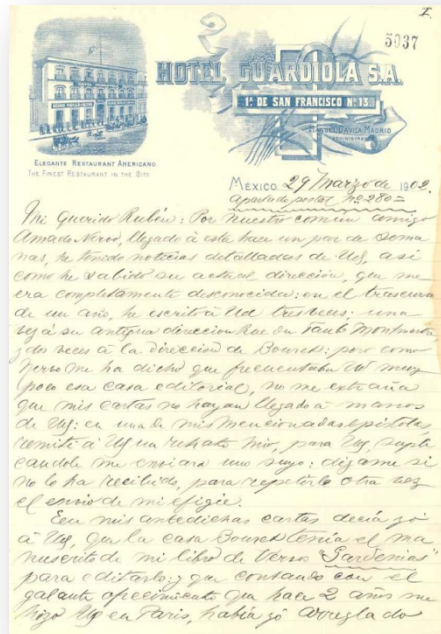 I.
5037
HOTEL GUARDIOLA S.A.
1ª DE SAN FRANCISCO Nº 13
MANUEL DAVILA MADRID
ELEGANTE RESTAURANT AMERICANO
THE FINEST RESTAURANT IN THE CITY
MÉXICO, 29 Marzo de 1902.
apartado postal nº 280=
Mi querido Rubén: Por nuestro común amigo
Amado Nervo, llegado á esta hace un par de sema
nas, he tenido noticias detalladas de Ud, así
como he sabido su actual dirección, que me
era completamente desconocida: en el trascurso
de un año, he escrito á Ud tres veces: una
á su antigua dirección Rue du Faub Montmartre
y dos veces á la dirección de Bouret: pero como
Nervo me ha dicho que frecuentaba Ud muy
poco esa casa editorial, no me extraña
que mis cartas no hayan llegado á manos
de Ud: en una de mis mencionadas epístolas,
remití á Ud un retrato mio, para Ud, supli
candole me enviara uno suyo: dígame si
no lo ha recibido, para repetirlo otra vez
el envio de mi efigie.
En mis antedichas cartas decía yó
á Ud, que la casa Bouret tenía el ma
nuscrito de mi libro de versos "Gardenias"
para editarlo; y que contando con el
galante ofrecimiento que hace 2 años me
hizo Ud en París, había yó arreglado